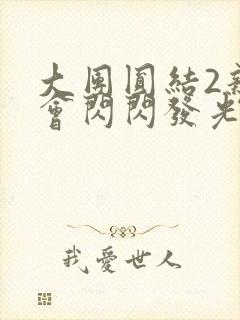 大團圓結2
會閃閃發光
我愛世人